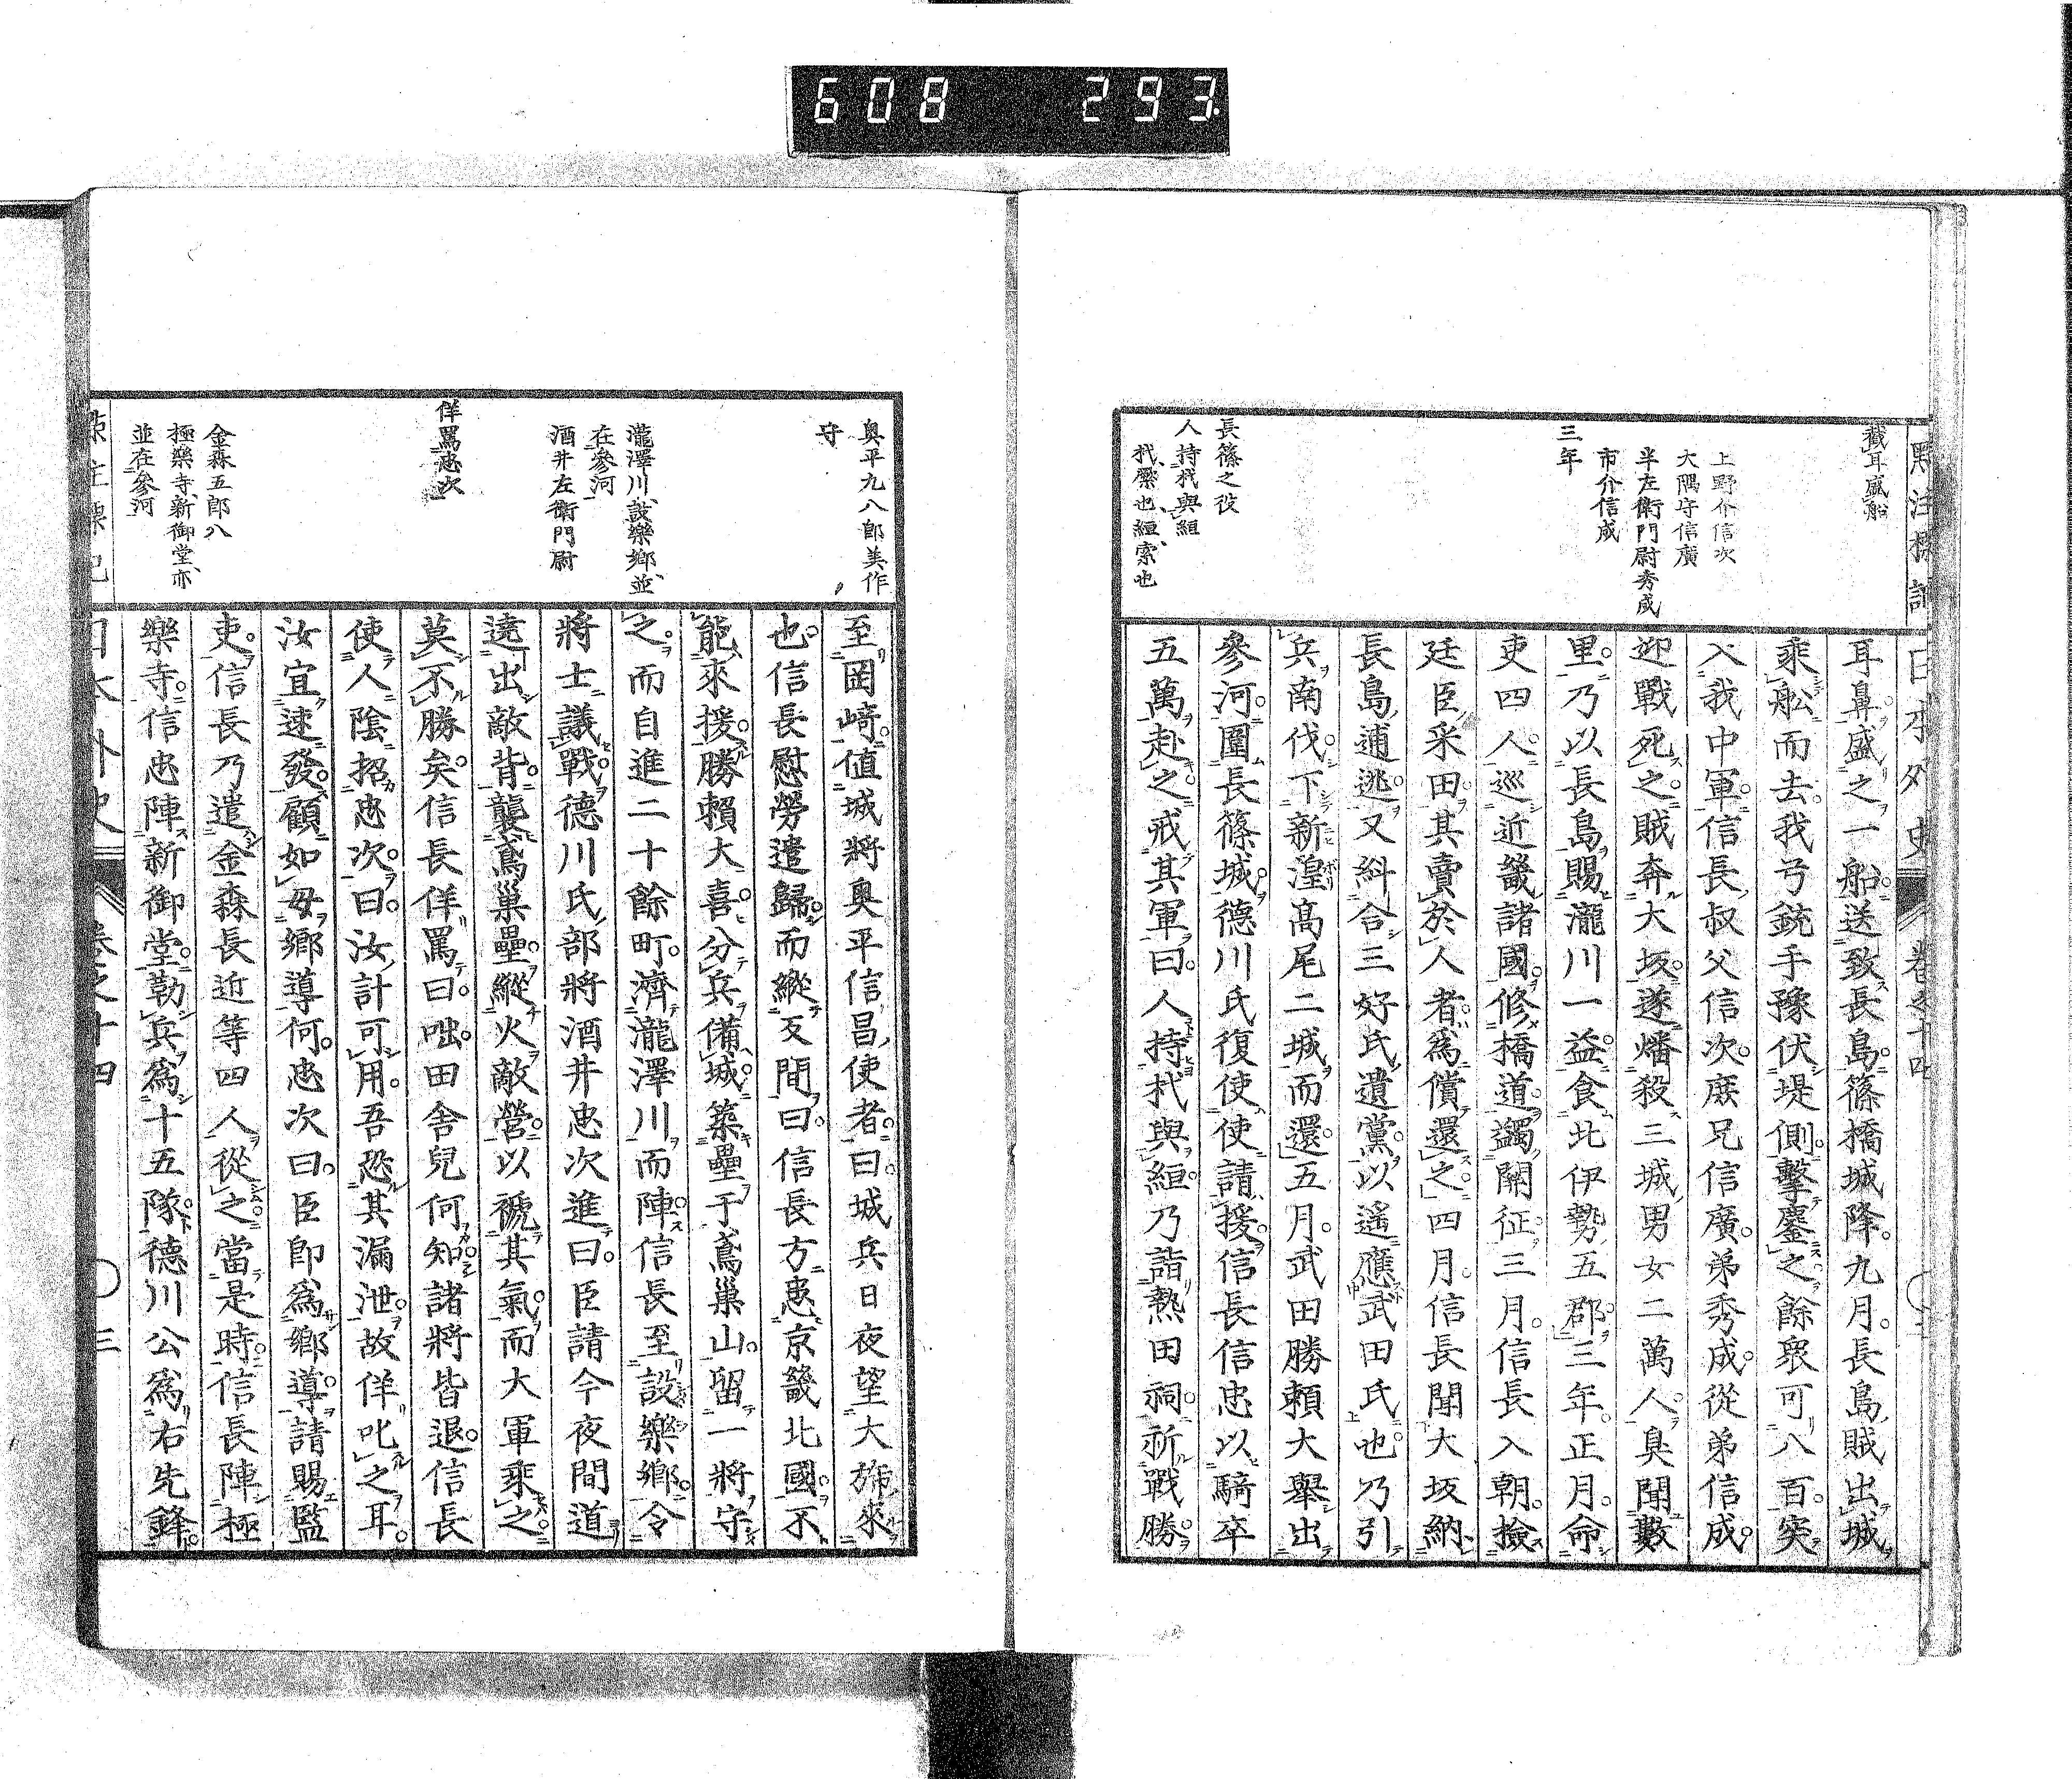 608 293
點注標記 日本外史 卷之十四 二
馘耳盛船
上野介信次
大隅守信廣
半左衞門尉秀成
市介信成
三年
長篠之役
人持杙與組
杙橜也、絙索也
耳鼻盛之一船送致長島篠橋城降九月長島賊出城
乘舩而去我弓銃手豫伏堤側擊鏖之餘衆可八百突
入我中軍信長叔父信次庶兄信廣弟秀成從弟信成
迎戰死之賊奔大坂遂燔殺三城男女二萬人臭聞數
里乃以長島賜瀧川一益食北伊勢五郡三年正月命
吏四人巡近畿諸國修橋道蠲關征三月信長入朝撿
廷臣采田其賣於人者爲償還之四月信長聞大坂納
長島逋逃又糾合三好氏遺黨以遙應武田氏也乃引
兵南伐下新湟高尾二城而還五月武田勝賴大舉出
參河圍長篠城德川氏復使使請援信長信忠以騎卒
五萬赴之戒其軍曰人持杙與絙乃詣熱田祠祈戰勝
奧平九八郎美作
守
瀧澤川、設樂鄉、並
在參河
酒井左衞門尉
佯罵忠次
金森五郎八
極樂寺、新御堂、亦
並在參河
至岡崎值城將奧平信昌使者曰城兵日夜望大旆來
也信長慰勞遣歸而縱反間曰信長方患京畿北國不
能來援勝賴大喜分兵備城築壘于鳶巢山留一將守
之而自進二十餘町濟瀧澤川而陣信長至設樂鄉令
將士議戰德川氏部將酒井忠次進曰臣請今夜間道
遶出敵背襲鳶巢壘縱火敵營以褫其氣而大軍乘之
莫不勝矣信長佯罵曰咄田舍兒何知諸將皆退信長
使人陰招忠次曰汝計可用吾恐其漏泄故佯叱之耳
汝宜速發顧如毋鄉導何忠次曰臣卽爲鄉導請賜監
吏信長乃遣金森長近等四人從之當是時信長陣極
樂寺信忠陣新御堂勒兵爲十五隊德川公爲右先鋒
日本外史 卷之十四 三